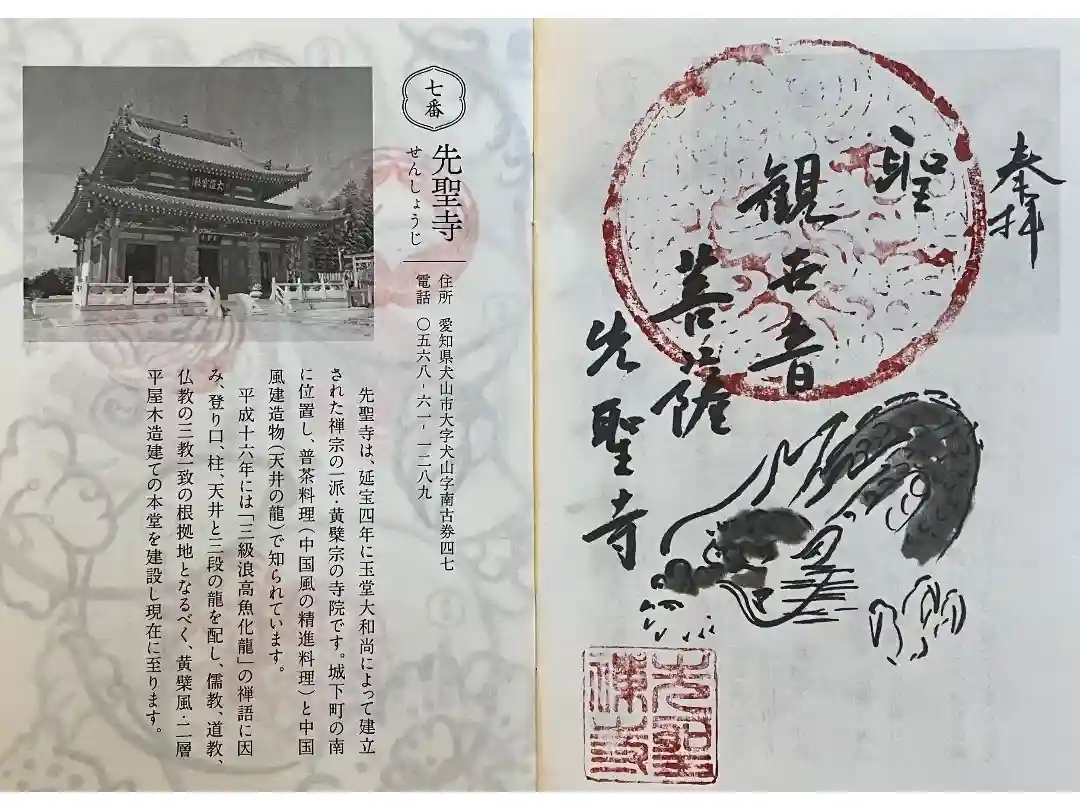 奉拝
聖
観世音
菩薩
先聖寺
先聖
禅寺
七番
先聖寺
せんしょうじ
住所　愛知県犬山市大字犬山字南古券四七
電話　〇五六八-六一-一二八九
先聖寺は、延宝四年に玉堂大和尚によって建立
された禅宗の一派・黄檗宗の寺院です。城下町の南
に位置し、普茶料理(中国風の精進料理)と中国
風建造物(天井の龍)で知られています。
平成十六年には「三級浪高魚化龍」の禅語に因
み、登り口、柱、天井と三段の龍を配し、儒教、道教、
仏教の三教一致の根拠地となるべく、黄檗風・二層
平屋木造建ての本堂を建設し現在に至ります。